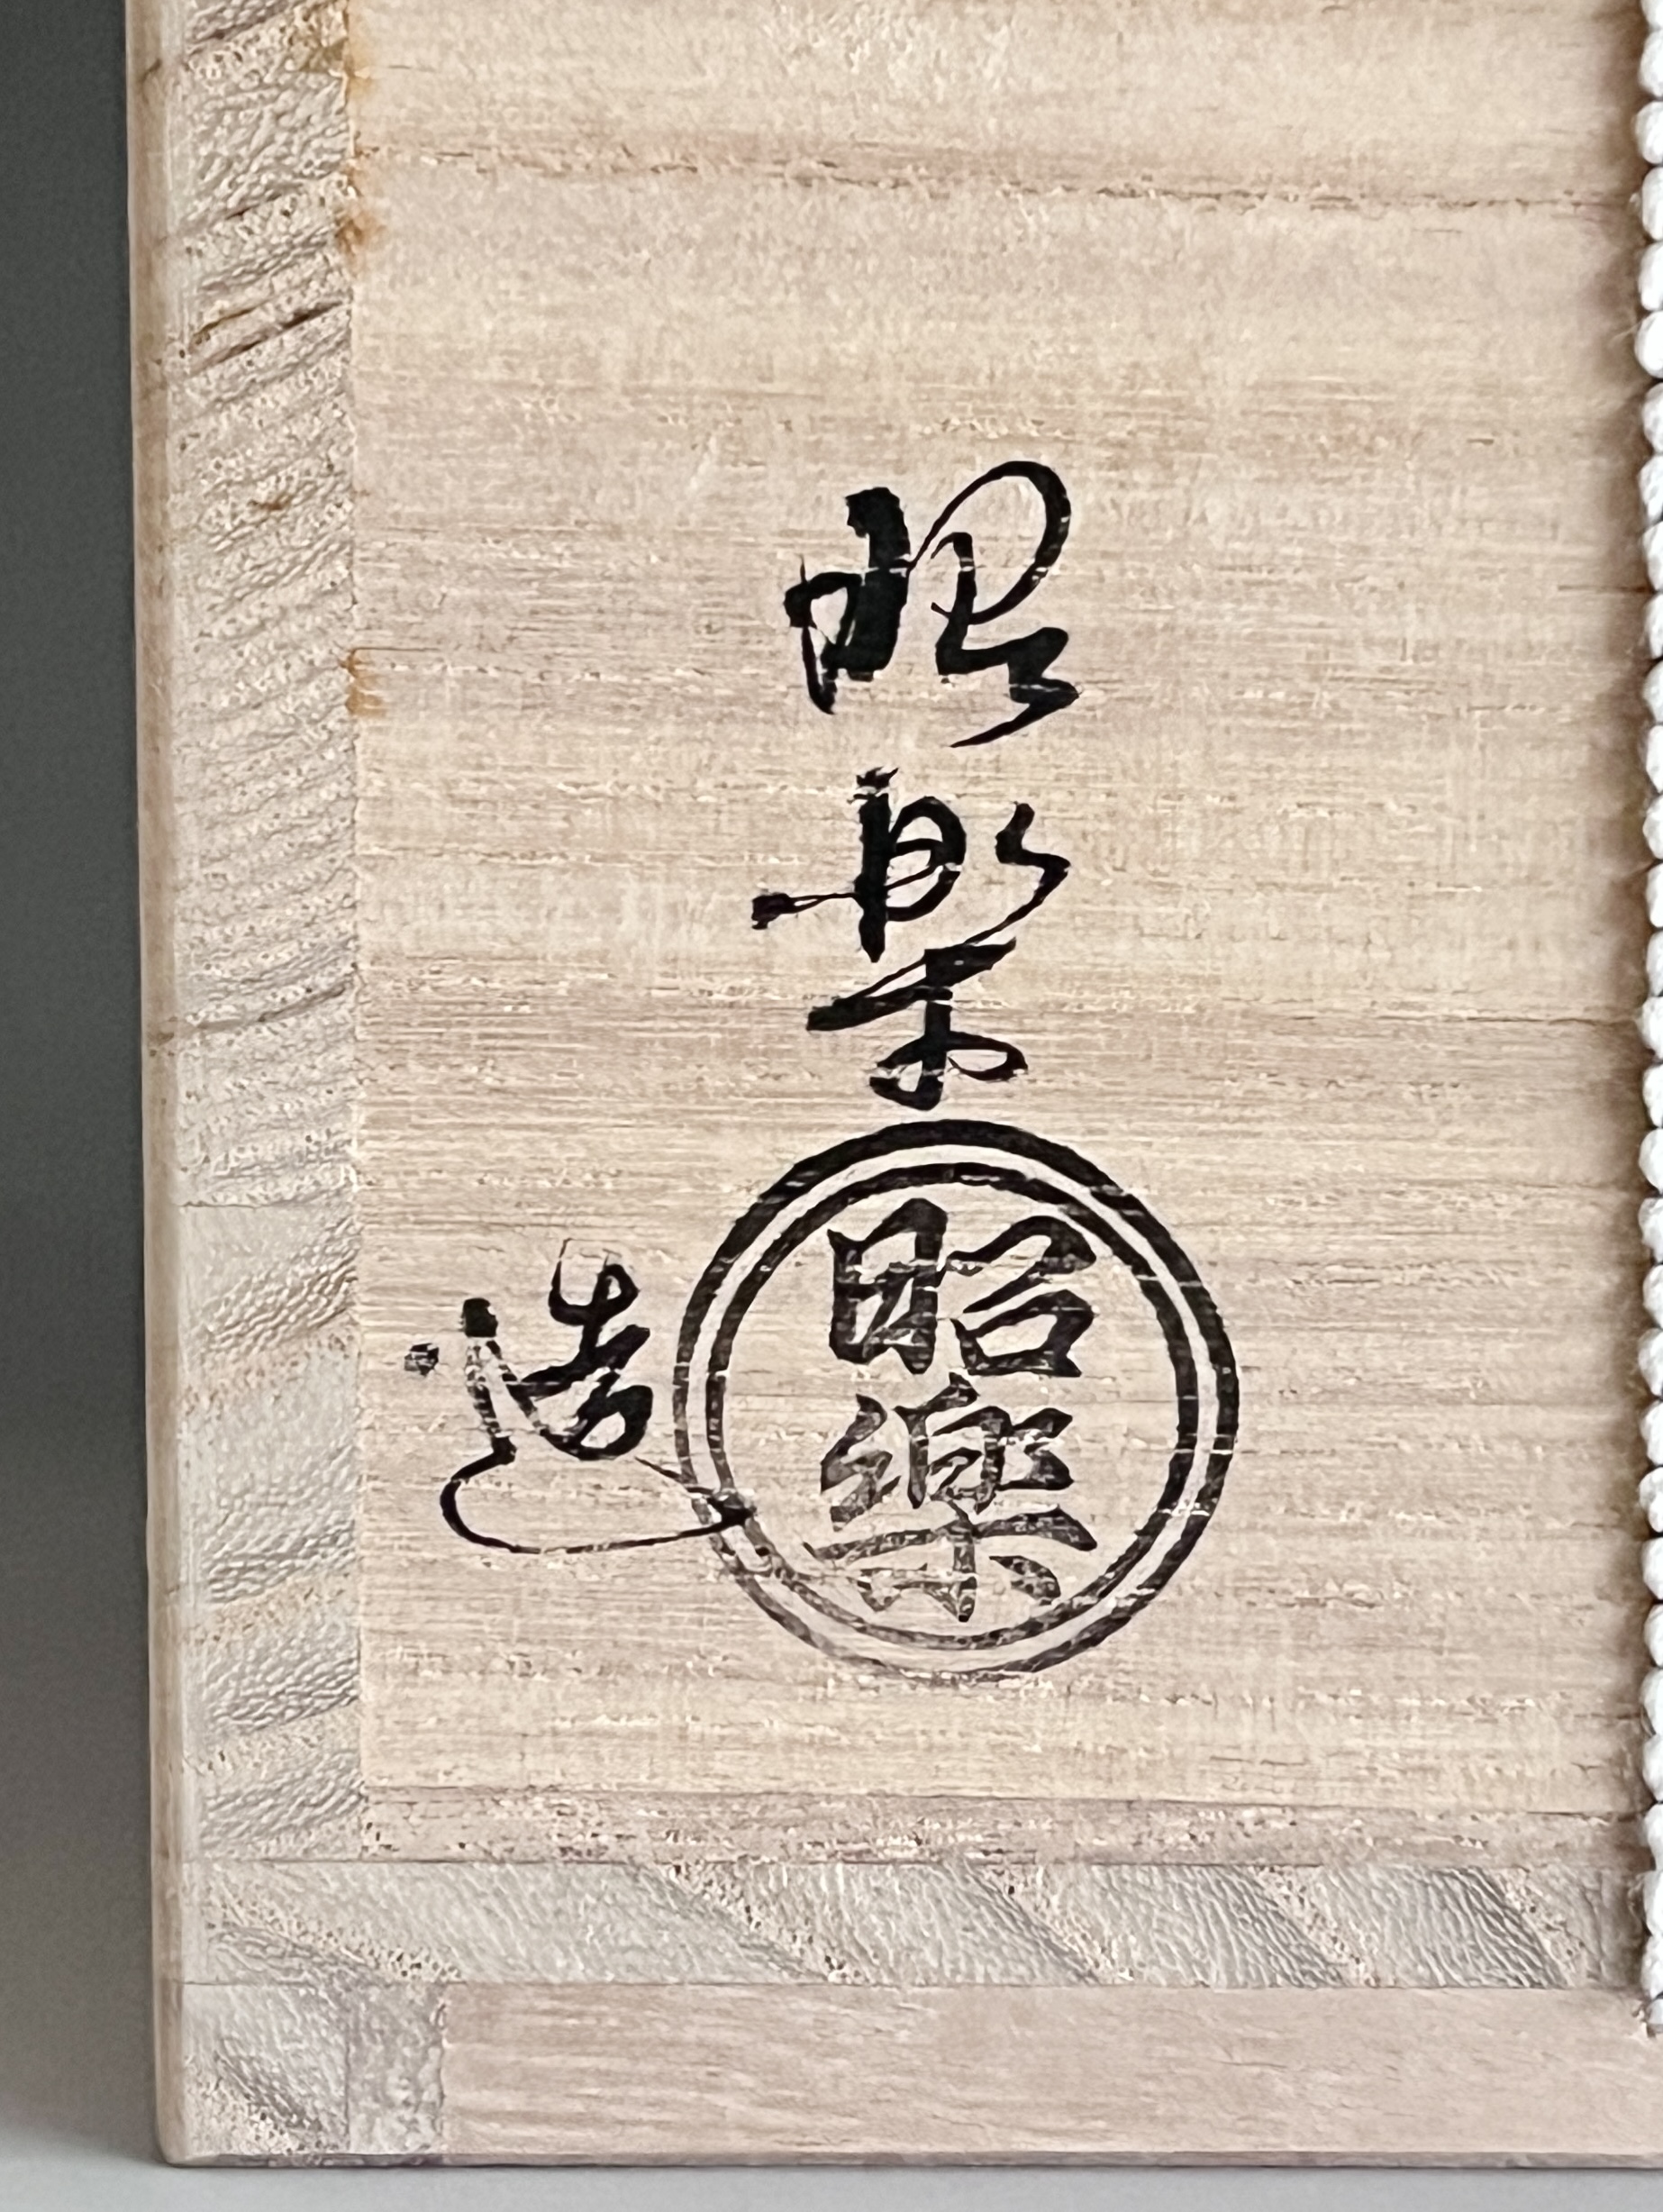 昭楽
昭樂
造